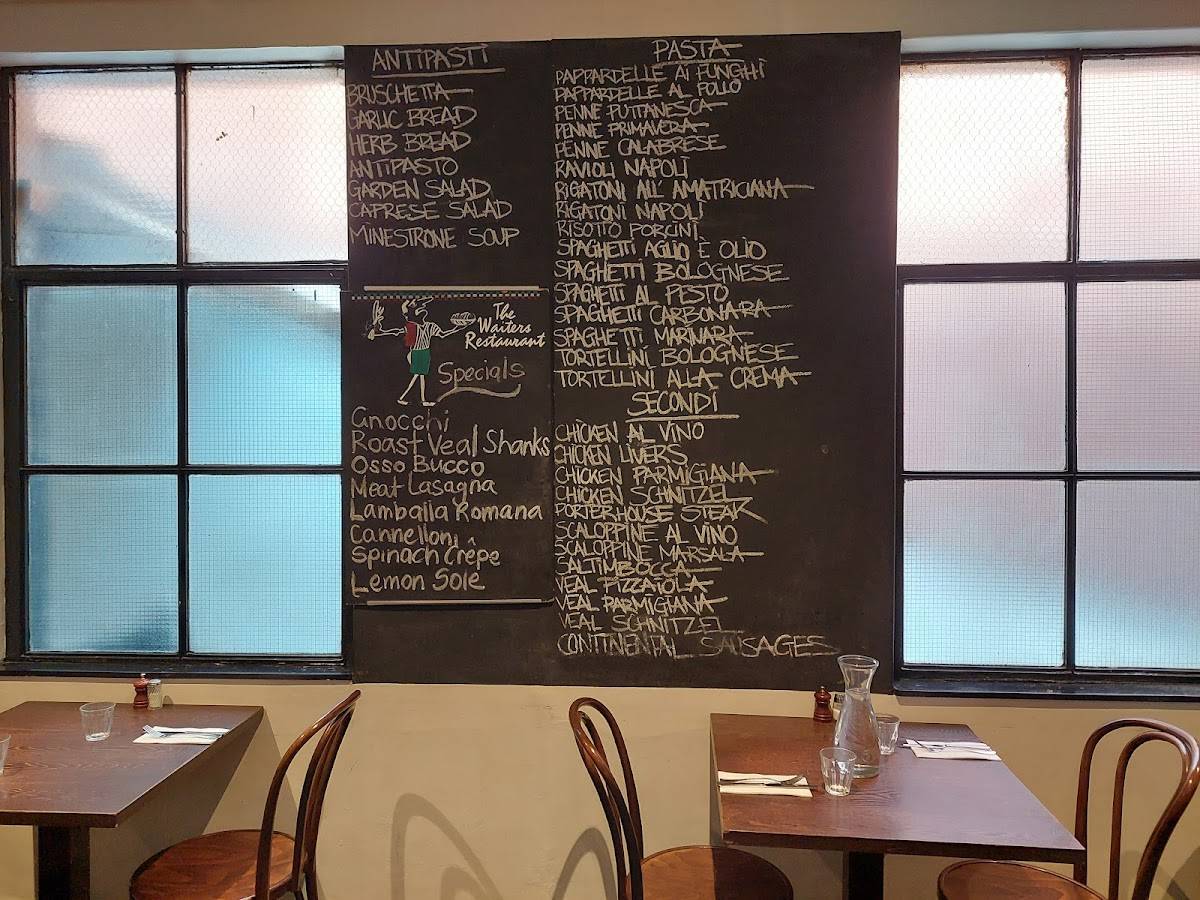 ANTIPASTI
BRUSCHETTA
GARLIC BREAD
HERB BREAD
ANTIPASTO
GARDEN SALAD
CAPRESE SALAD
MINESTRONE SOUP
The
Waiters
Restaurant
Specials
Gnocchi
Roast Veal Shanks
Osso Bucco
Meat Lasagna
Lamballa Romana
Cannelloni
Spinach Crêpe
Lemon Sole
PASTA
PAPPARDELLE AI FUNGHI
PAPPARDELLE AL POLLO
PENNE PUTTANESCA
PENNE PRIMAVERA
PENNE CALABRESE
RAVIOLI NAPOLI
RIGATONI ALL' AMATRICIANA
RIGATONI NAPOLI
RISOTTO PORCINI
SPAGHETTI AGLIO È OLIO
SPAGHETTI BOLOGNESE
SPAGHETTI AL PESTO
SPAGHETTI CARBONARA
SPAGHETTI MARINARA
TORTELLINI BOLOGNESE
TORTELLINI ALLA CREMA
SECONDI
CHICKEN AL VINO
CHICKEN LIVERS
CHICKEN PARMIGIANA
CHICKEN SCHNITZEL
PORTERHOUSE STEAK
SCALOPPINE AL VINO
SCALOPPINE MARSALA
SALTIMBOCCA
VEAL PIZZAIOLA
VEAL PARMIGIANA
VEAL SCHNITZEL
CONTINENTAL SAUSAGES